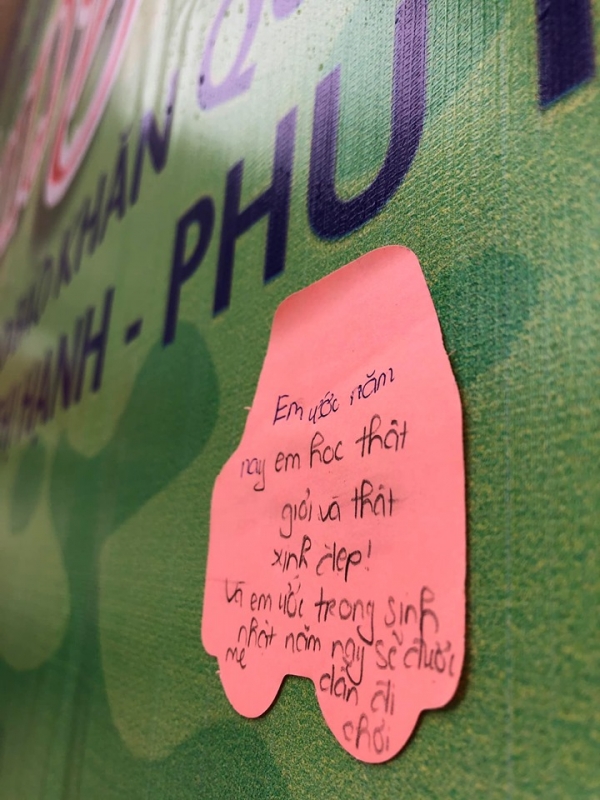 KHĂN
HẠNH - PHÚ
Em ước năm
nay em học thật
giỏi và thật
xinh đẹp!
Và em ước trong sinh
nhật năm nay sẽ được
mẹ dẫn đi
chơi